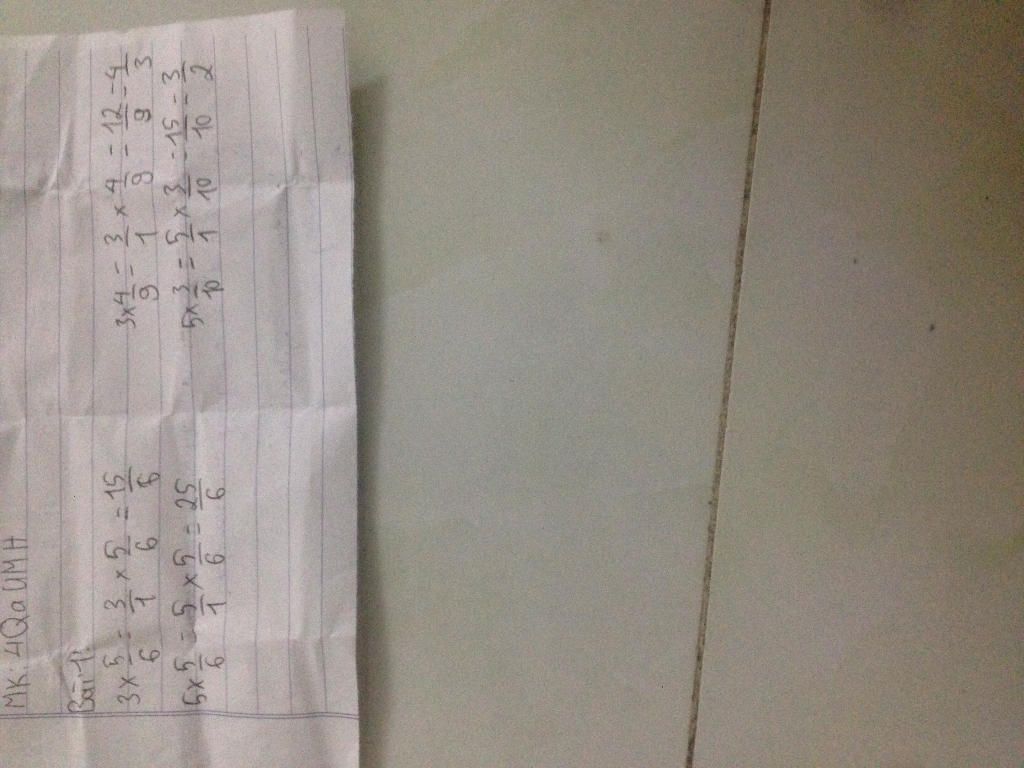 MK: 4QaUMH
Bài 1:
3 x 5/6 = 3/1 x 5/6 = 15/6
3 x 4/9 = 3/1 x 4/9 = 12/9 = 4/3
5 x 5/6 = 5/1 x 5/6 = 25/6
5 x 3/10 = 5/1 x 3/10 = 15/10 = 3/2